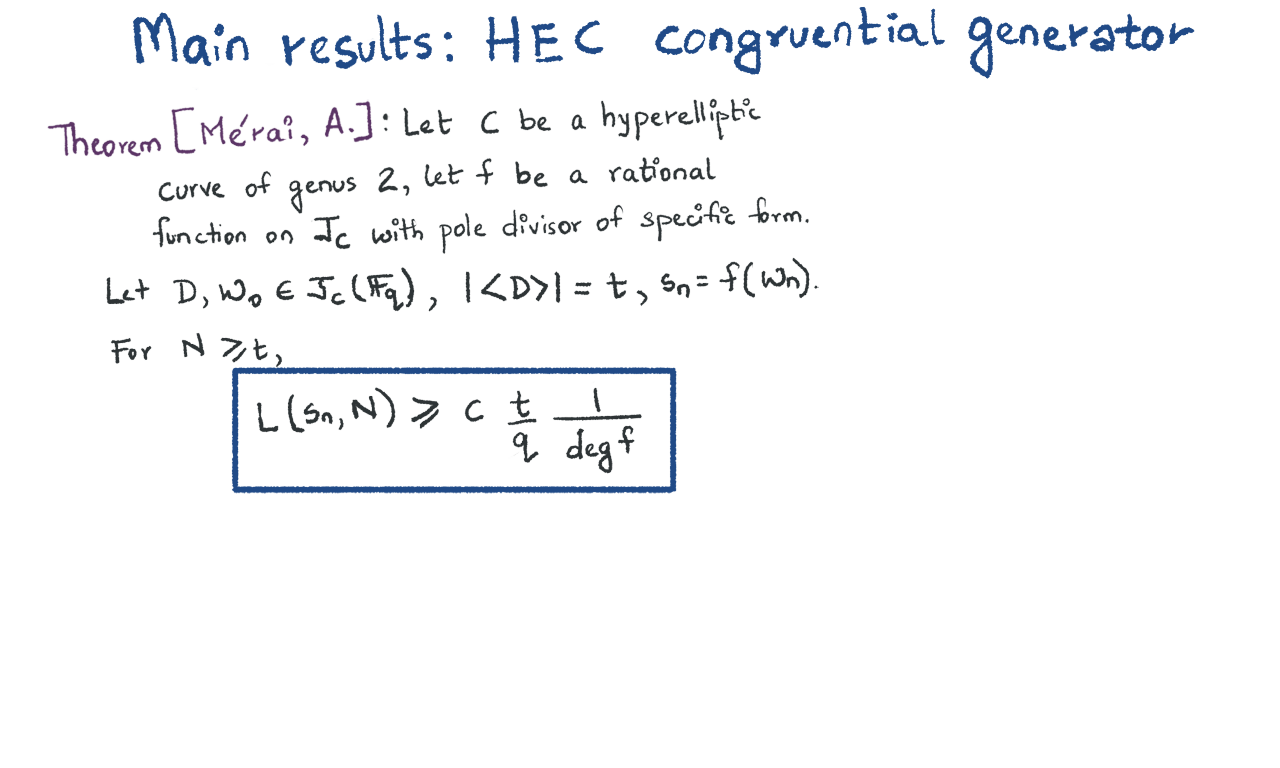 Main results: HEC congruential generator
Theorem [Mérai, A.]: Let C be a hyperelliptic
curve of genus 2, let f be a rational
function on J_C with pole divisor of specific form.
Let D, W_0 ∈ J_C(𝔽_q), |<D>| = t, s_n = f(W_n).
For N ⩾ t,
L(s_n, N) ⩾ c t/q 1/deg f